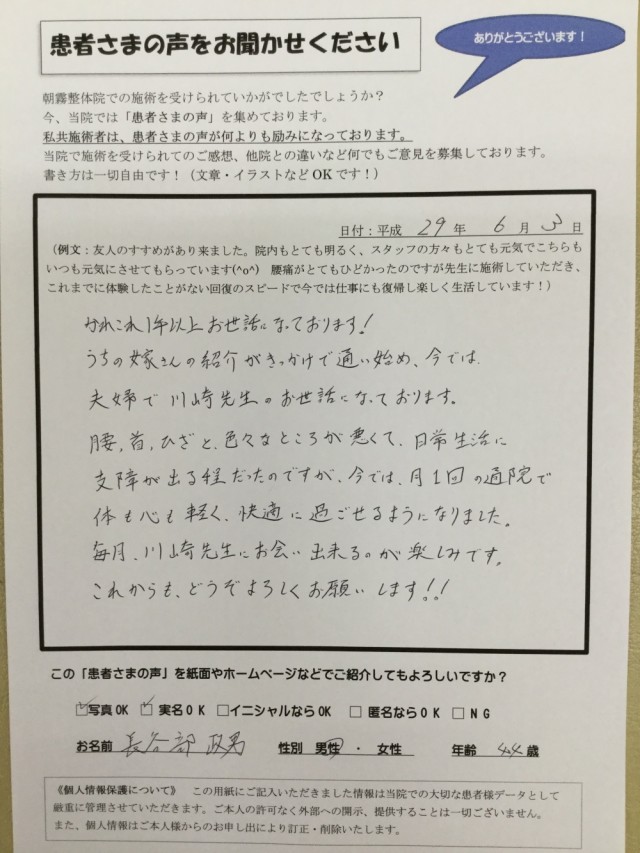 患者さまの声をお聞かせください
ありがとうございます!
朝霧整体院での施術を受けられていかがでしたでしょうか?
今、当院では「患者さまの声」を集めております。
私共施術者は、患者さまの声が何よりも励みになっております。
当院で施術を受けられてのご感想、他院との違いなど何でもご意見を募集しております。
書き方は一切自由です!(文章・イラストなどOKです!)
日付:平成 29 年 6 月 3 日
(例文:友人のすすめがあり来ました。院内もとても明るく、スタッフの方々もとても元気でこちらも
いつも元気にさせてもらっています(^o^) 腰痛がとてもひどかったのですが先生に施術していただき、
これまでに体験したことがない回復のスピードで今では仕事にも復帰し楽しく生活しています!)
かれこれ1年以上お世話になっております!
うちの嫁さんの紹介がきっかけで通い始め、今では
夫婦で川崎先生のお世話になっております。
腰,首,ひざと、色々なところが悪くて、日常生活に
支障が出る程だったのですが、今では、月1回の通院で
体も心も軽く、快適に過ごせるようになりました。
毎月、川崎先生にお会い出来るのが楽しみです。
これからも、どうぞよろしくお願いします!!
この「患者さまの声」を紙面やホームページなどでご紹介してもよろしいですか?
☑写真OK ☑実名OK □イニシャルならOK □匿名ならOK □NG
お名前 長谷部 政男 性別 男性 ・ 女性 年齢 44 歳
《個人情報保護について》 この用紙にご記入いただきました情報は当院での大切な患者様データとして
厳重に管理させていただきます。ご本人の許可なく外部への開示、提供することは一切ございません。
また、個人情報はご本人様からのお申し出により訂正・削除いたします。